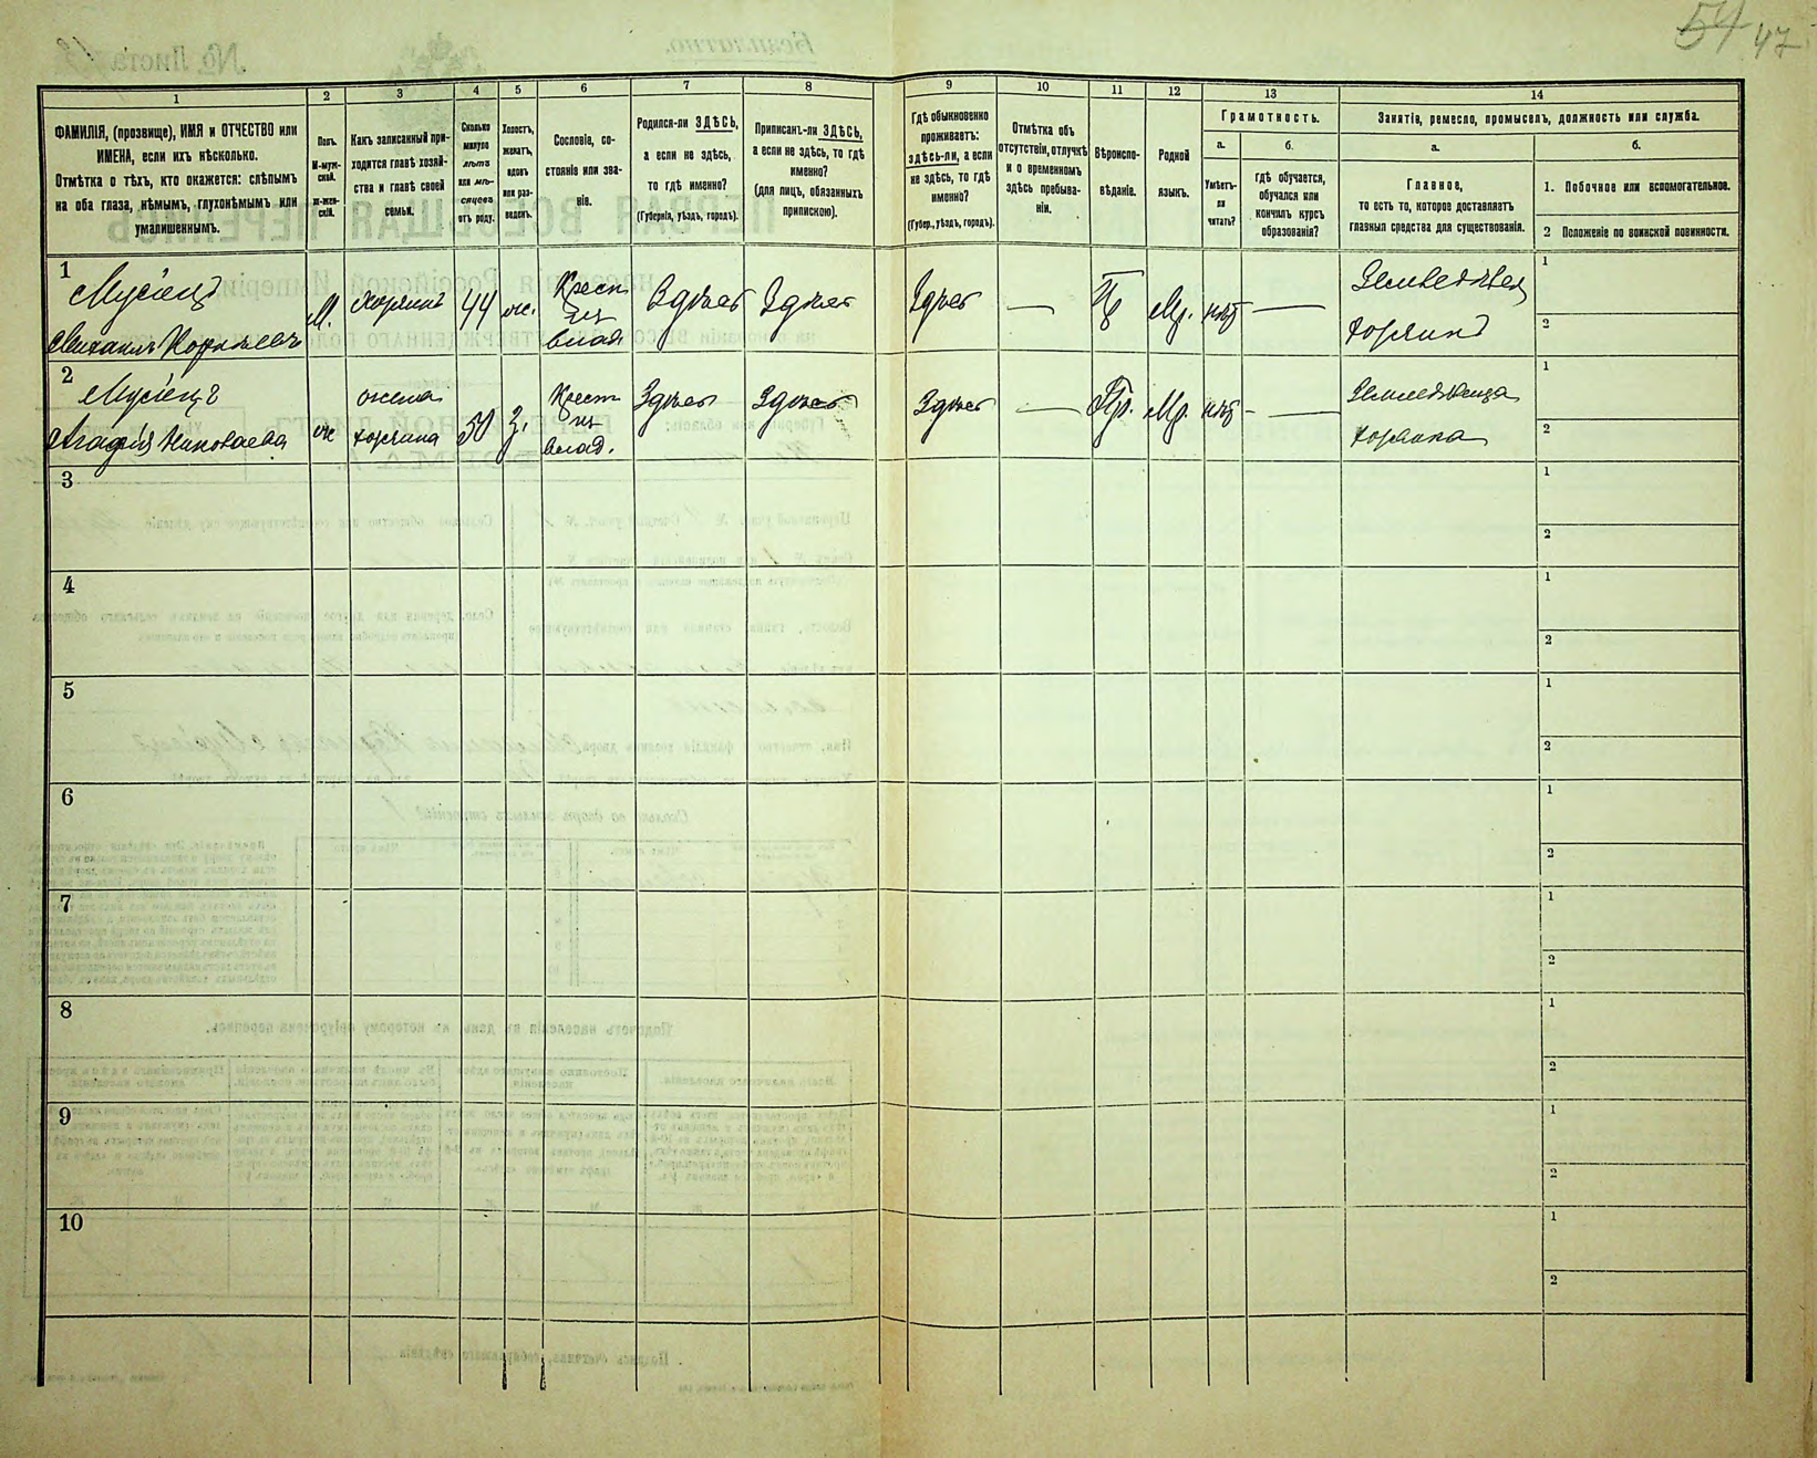 54 47
1
2
3
4
5
6
7
8
9
10
11
12
13
14
ФАМИЛІЯ, (прозвище), ИМЯ и ОТЧЕСТВО или
ИМЕНА, если ихъ нѣсколько.
Отмѣтка о тѣхъ, кто окажется: слѣпымъ
на оба глаза, нѣмымъ, глухонѣмымъ или
умалишеннымъ.
Полъ.
М-муж-
ской.
ж-жен-
скій.
Какъ записанный при-
ходится главѣ хозяй-
ства и главѣ своей
семьи.
Сколько
минуло
лѣтъ
или мѣ-
сяцевъ
отъ роду.
Холостъ,
женатъ,
вдовъ
или раз-
веденъ.
Сословіе, со-
стояніе или зва-
ніе.
Родился-ли ЗДѢСЬ,
а если не здѣсь,
то гдѣ именно?
(Губернія, уѣздъ, городъ).
Приписанъ-ли ЗДѢСЬ,
а если не здѣсь, то гдѣ
именно?
(для лицъ, обязанныхъ
припискою).
Гдѣ обыкновенно
проживаетъ:
здѣсь-ли, а если
не здѣсь, то гдѣ
именно?
(Губер., уѣздъ, городъ).
Отмѣтка объ
отсутствіи, отлучкѣ
и о временномъ
здѣсь пребыва-
ніи.
Вѣроиспо-
вѣданіе.
Родной
языкъ.
Грамотность.
а.
Умѣетъ-
ли
читать?
б.
гдѣ обучается,
обучался или
кончилъ курсъ
образованія?
Занятіе, ремесло, промыселъ, должность или служба.
а.
Главное,
то есть то, которое доставляетъ
главныя средства для существованія.
б.
1. Побочное или вспомогательное.
2 Положеніе по воинской повинности.
1
Мусіецъ
Михаилъ Корнѣевъ
М.
хозяинъ
44
ж.
Крест
из
влад.
Здѣсь
Здѣсь
Здѣсь
—
Пр
Мр.
нѣт
—
хозяинъ
1
2
2
Мусіецъ
Агафія Николаева
ж
жена
хозяина
50
з.
Крест
из
влад.
Здѣсь
Здѣсь
Здѣсь
—
Пр.
Мр.
нѣт
—
хозяина
1
2
3
1
2
4
1
2
5
1
2
6
1
2
7
1
2
8
1
2
9
1
2
10
1
2